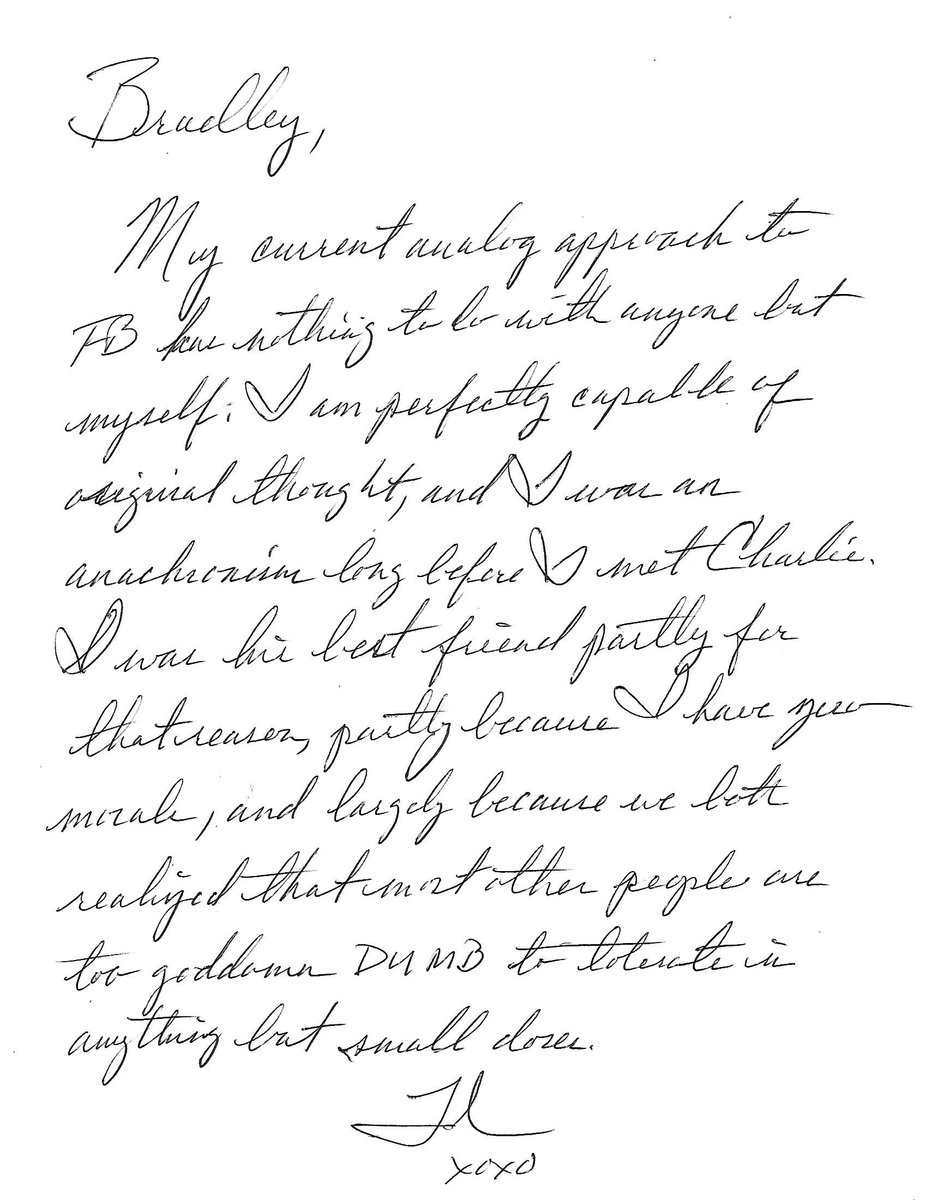 Bradley,
My current analog approach to
FB has nothing to do with anyone but
myself. I am perfectly capable of
original thought, and I was an
anachronism long before I met Charlie.
I was his best friend partly for
that reason, partly because I have zero
morals, and largely because we both
realized that most other people are
too goddamn DUMB to tolerate in
anything but small doses.
xoxo